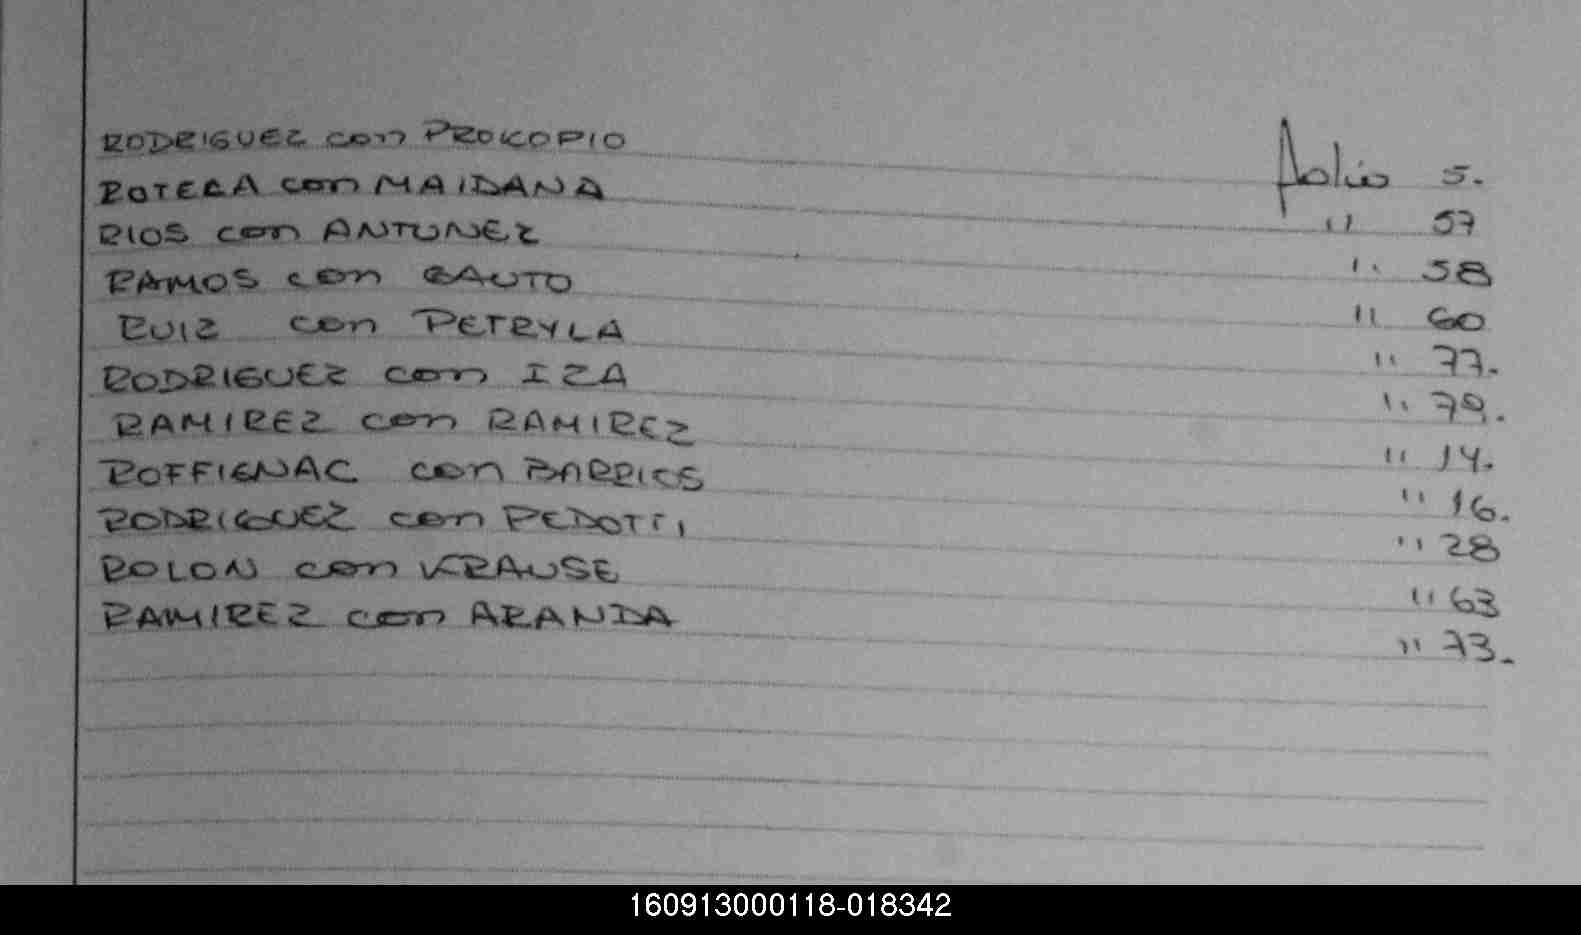 RODRIGUEZ con PROKOPIO Folio 5.
ROTELA con MAIDANA " 57
RIOS con ANTUNEZ " 58
RAMOS con GAUTO " 60
RUIZ con PETRYLA " 77.
RODRIGUEZ con IZA " 79.
RAMIREZ con RAMIREZ " 14.
ROFFIGNAC con BARRIOS " 16.
RODRIGUEZ con PEDOTTI " 28
ROLON con KRAUSE " 63
RAMIREZ con ARANDA " 73.
160913000118-018342